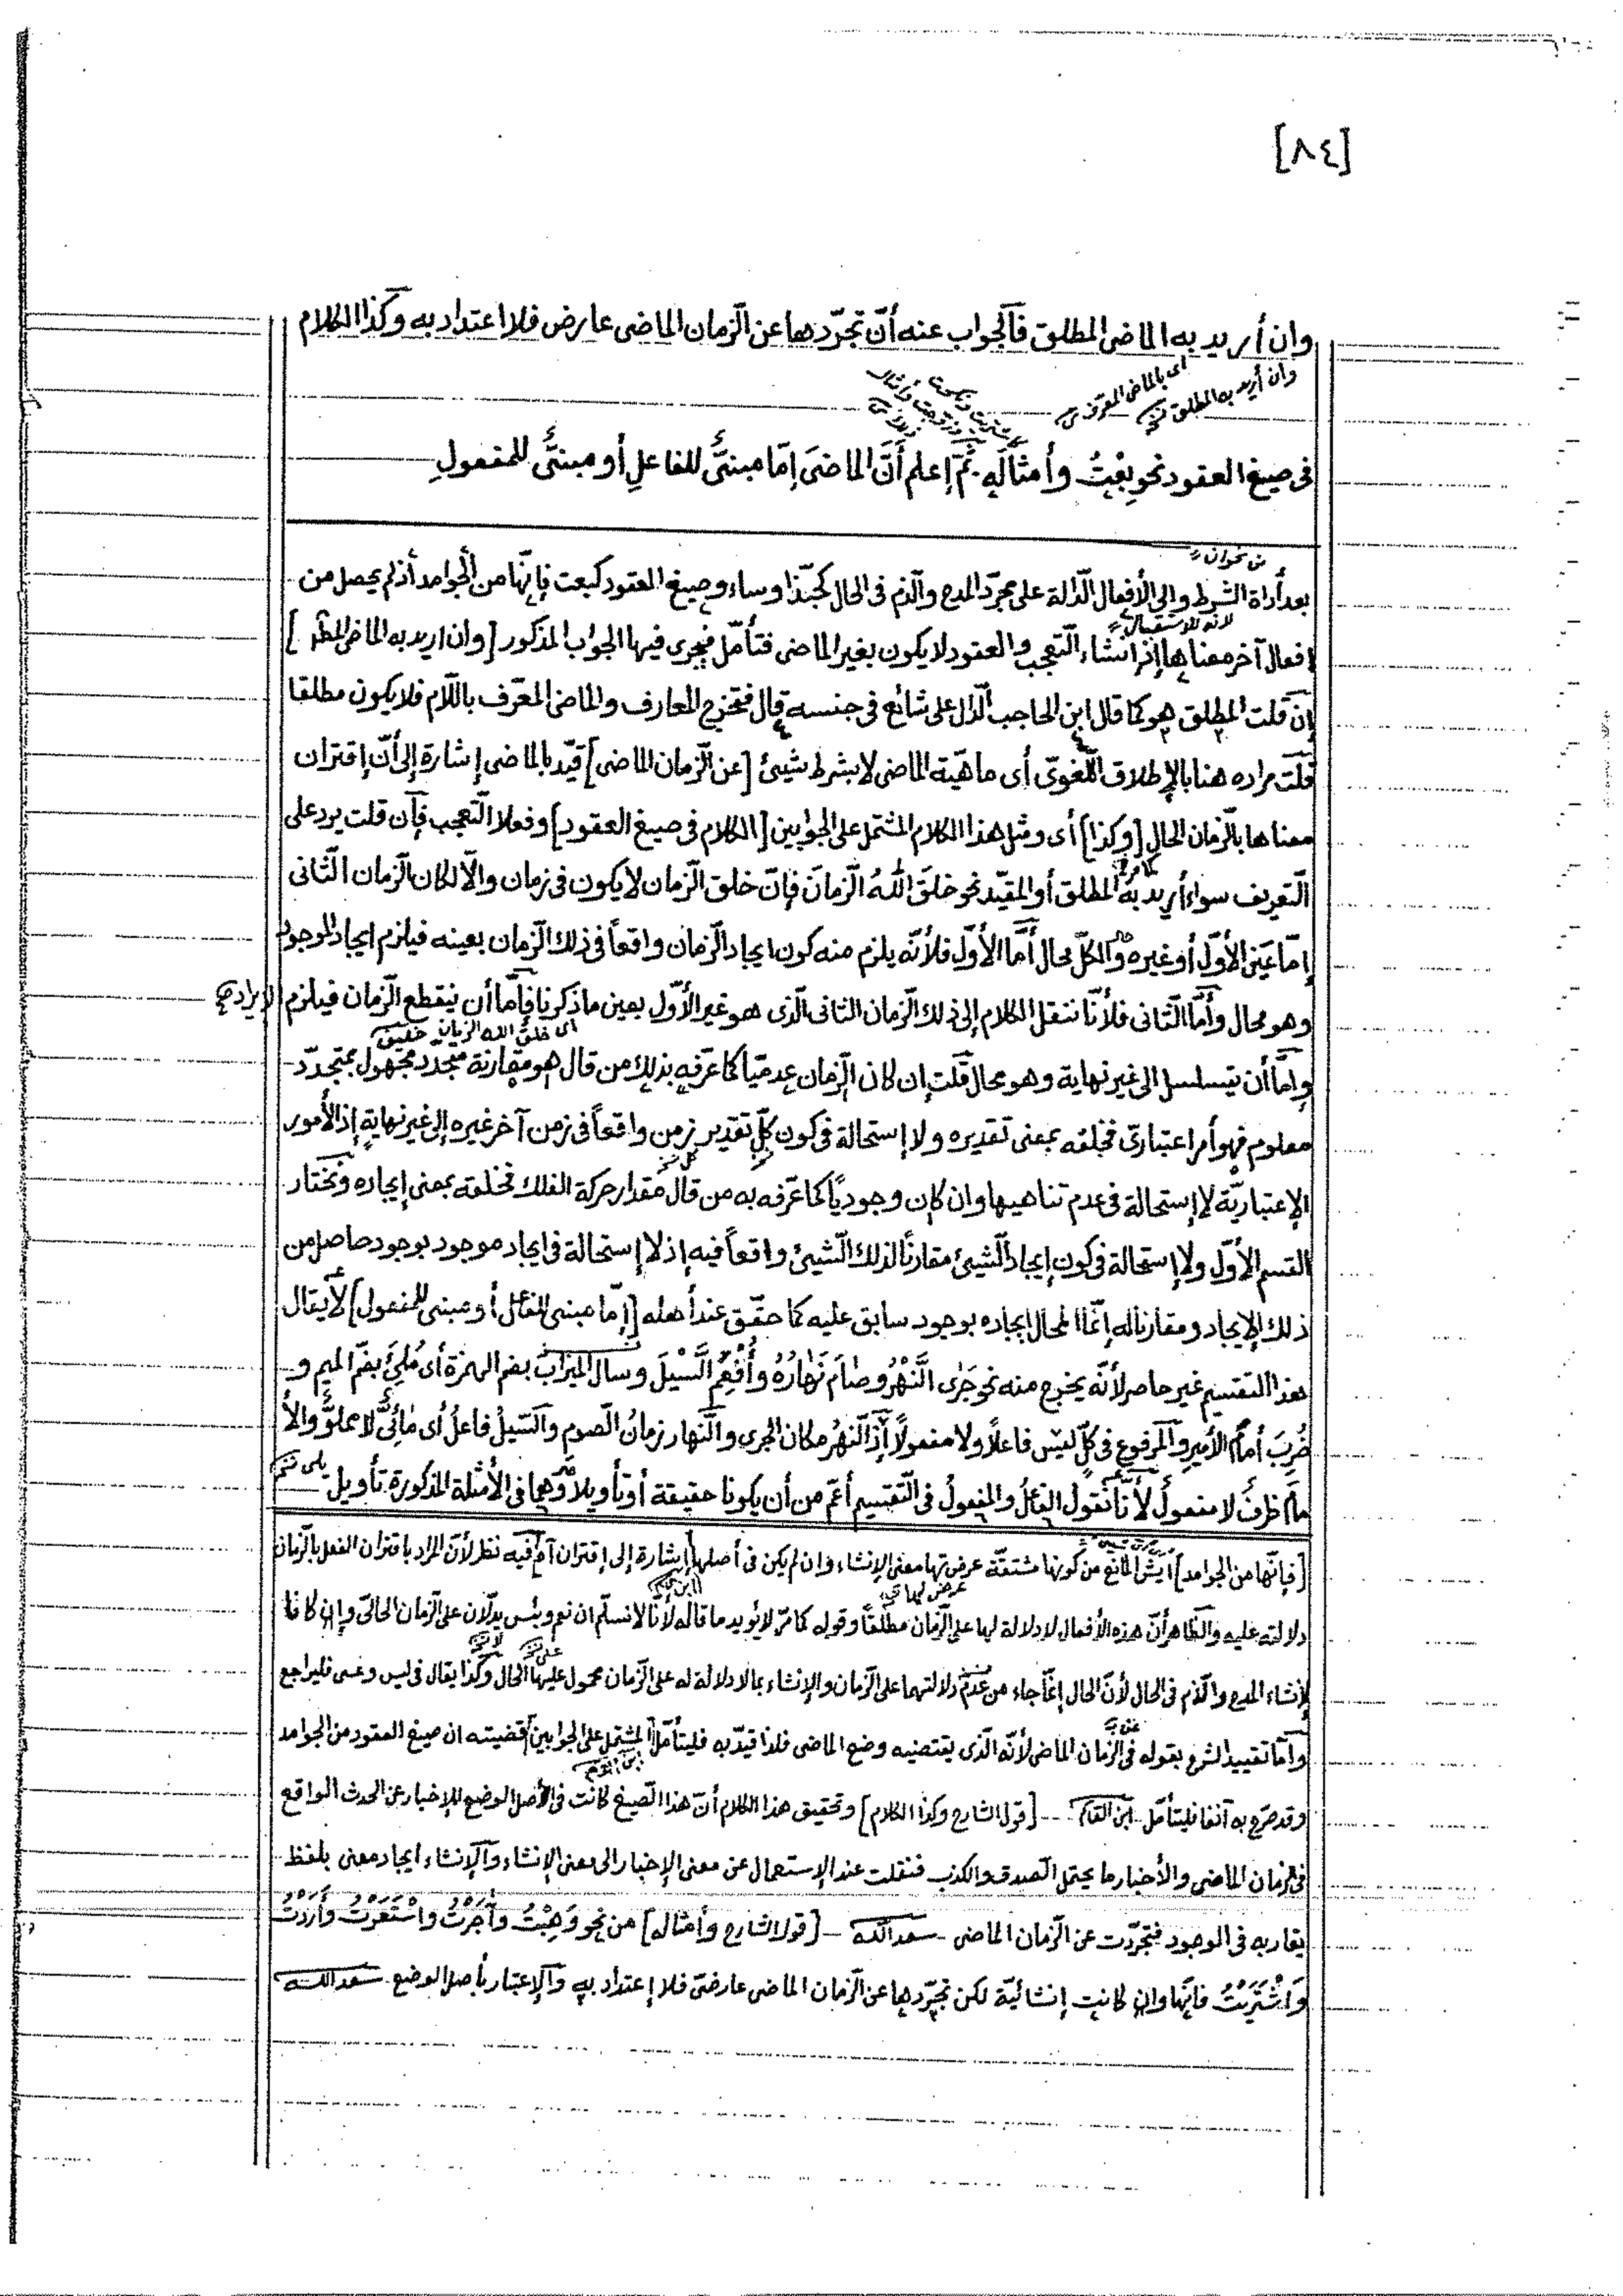 [٨٤]
وان أريد به الماضى المطلق فالجواب عنه أنّ تجرّدها عن الزّمان الماضى عارض فلا اعتداد به وكذا الكلام
وان أريد به المطلق
أى بالماضى المعرّف
فى صيغ العقود نحو بِعْتُ وأمثاله ثمّ إعلم أنّ الماضىَ إمّا مبنىٌّ للفاعلِ أو مبنىٌّ للمفعولِ
من نحو ان
بعد أداة الشرط والى الأفعال الدّالة على مجرّد المدح والذّم فى الحال كحبّذا وساء وصيغ العقود كبعت فإنّها من الجوامد أذ لم يحصل من
لانه للاستقبال
افعال آخر معناها إذ انشاء التّعجب والعقود لا يكون بغير الماضى فتأمّل فيجرى فيها الجواب المذكور [وان اريد به الماضى المط]
إن قلت المطلق هو كما قال ابن الحاجب الدّال على شائع فى جنسه قال فتخرج المعارف والماضى المعرّف باللّام فلا يكون مطلقا
قلت مراده هنا بالإطلاق اللّغوىّ أى ماهيّة الماضى لا بشرط شيئ [عن الزّمان الماضى] قيّد بالماضى إشارة إلى أنّ إقتران
معناها بالزّمان الحال [وكذا] أى ومثل هذا الكلام المشتمل على الجوابين [الكلام فى صيغ العقود] وفعلا التّعجب فإن قلت يرد على
كما مر
التّعريف سواء أريد به المطلق أو المقيّد نحو خلقَ اللّهُ الزّمانَ فإنّ خلق الزّمان لا يكون فى زمان والّا لكان الزّمان الثّانى
إمّا عين الأوّل أو غيره والكلّ محال أمّا الأوّل فلأنّه يلزم منه كون ايجاد الزّمان واقعاً فى ذلك الزّمان بعينه فيلزم ايجاد الموجود
وهو محال وأمّا الثّانى فلأنّا ننقل الكلام إلى ذلك الزّمان الثانى الّذى هو غير الأوّل بعين ما ذكرنا فإمّا أن ينقطع الزّمان فيلزم الإيراد
أى خلق الله الزمان
وامّا أن يتسلسل الى غير نهاية وهو محال قلت إن كان الزّمان عدميّا كما عرّفه بذلك من قال هو مقارنة متجدد مجهول بمتجدّد
معلوم فهو أمر اعتبارىّ فخلقه بمعنى تقديره ولا إستحالة فى كون كلّ تقدير زمن واقعاً فى زمن آخر غيره إلى غير نهاية إذ الأمور
الإعتباريّة لا إستحالة فى عدم تناهيها وان كان وجوديّا كما عرّفه به من قال مقدار حركة الفلك فخلقه بمعنى إيجاده ونختار
القسم الأوّل ولا إستحالة فى كون إيجاد الشيئ مقارنًا لذلك الشّيئ واقعاً فيه إذ لا إستحالة فى ايجاد موجود بوجود حاصل من
ذلك الإيجاد ومقارنا له إنّما المحال إيجاده بوجود سابق عليه كما حقّق عند أهله [إمّا مبنى للفاعل أو مبنى للمفعول] لا يقال
هذا التقسيم غير حاصر لأنّه يخرج منه نحو جَرٰى النَّهْرُ وصٰامَ نَهٰارُهُ وأُفْعِمَ السَّيْلَ وسال الميزابُ بضم الهمزة أى مُلِئَ بضمّ الميم و
ضُرِبَ أمامُ الأميرِ والمرفوع فى كلٍّ ليس فاعلاً ولا مفعولاً إذ النّهرُ مكان الجرى والنّهار زمانُ الصّومِ والسّيلُ فاعلُ أى مٰالِئٌ لا مملوٌّ والأ
مام ظرفٌ لا مفعولُ لأنّا نقول الفاعلُ والمفعولُ فى التّقسيم أعمّ من أن يكونا حقيقة أو تأويلا وهما فى الأمثلة المذكورة تأويل
[فإنّها من الجوامد] أيش المانع من كونها مشتقّة عرض لها معنى الإنشاء وان لم يكن فى أصلها [إشارة إلى إقتران آه] فيه نظر لأنّ المراد باقتران الفعل بالزّمان
دلالته عليه والظّاهر أنّ هذه الأفعال لا دلالة لها على الزّمان مطلقاً وقوله كما مرّ لا يؤيد ما قاله لأنّا لا نسلّم ان نعم وبئس يدلّان على الزّمان الحالىّ وإن كانا
لإنشاء المدح والذّم فى الحال لأنّ الحال إنّما جاء من عدم دلالتهما على الزّمان والإنشاء بما لا دلالة له على الزّمان محمول عليها الحال وكذا يقال فى ليس وعسى فليراجع
وامّا تقييد الشرح بقوله فى الزّمان الماضى لأنّه الّذى يقتضيه وضع الماضى فلذا قيّد به فليتأمّل [المشتمل على الجوابين] قضيته ان صيغ العقود من الجوامد
وقد صرّح به آنفا فليتأمّل ابن القاسم -- [قول الشارح وكذا الكلام] وتحقيق هذا الكلام أنّ هذا الصّيغ كانت فى الأصل الوضع للإخبار عن الحدث الواقع
فى الزمان الماضى والأخبار ما يحتمل الصدق والكذب فنقلت عند الإستعمال عن معنى الإخبار الى معنى الإنشاء والإنشاء ايجاد معنى بلفظ
يقاربه فى الوجود فتجرّدت عن الزّمان الماضى سعد الله - [قول الشارح وأمثاله] من نحو وَهِبْتُ وآجَرْتُ واسْتَعَرْتُ وأَرَدْتُ
وَاشْتَرَيْتُ فانّها وان كانت إنشائيّة لكن تجرّدها عن الزّمان الماضى عارضىّ فلا إعتداد به والإعتبار بأصل الوضع سعد الله